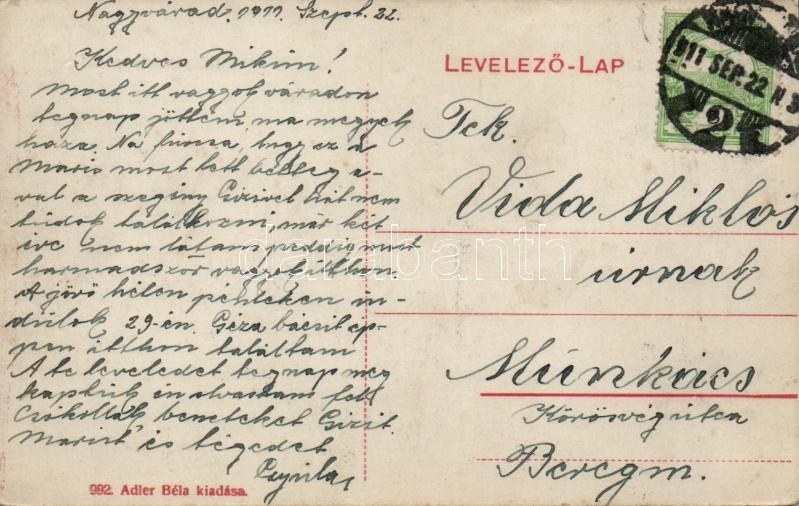 Nagyvárad, 1911. Szept. 22.
Kedves Mikim!
Most itt vagyok váradon
tegnap jöttem, ma megyek
haza. Na furcsa, hogy ez a
Maris most lett beteg a-
val a szegény Gizivel hát nem
tudok találkozni, már két
éve nem láttam pedig most
harmadszor vagyok itthon.
A jövő héten pénteken in-
dulok 29-én. Géza bácsit ép-
pen itthon találtam
A te leveledet tegnap meg
kaptuk én olvastam fel
Csókollak benneteket Gizit
Marist és tégedet
Gyula
992. Adler Béla kiadása.
LEVELEZŐ-LAP
911 SEP. 22 N 3
2
Tek.
Vida Miklós
úrnak
Munkács
Körösvég utca
Beregm.
darabanth